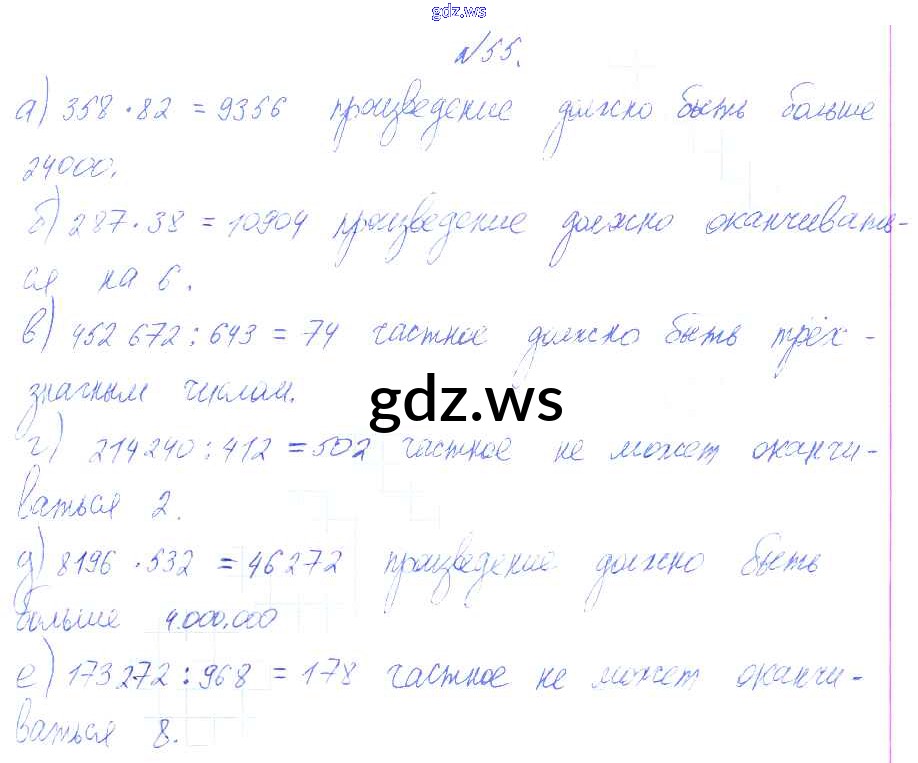 gdz.ws
№55.
а) 358 · 82 = 9356 произведение должно быть больше
24000.
б) 287 · 38 = 10904 произведение должно оканчивать-
ся на 6.
в) 452 672 : 643 = 74 частное должно быть трёх-
значным числом.
gdz.ws
г) 214240 : 412 = 502 частное не может оканчи-
ваться 2.
д) 8196 · 532 = 46272 произведение должно быть
больше 4.000.000
е) 173272 : 968 = 178 частное не может оканчи-
ваться 8.